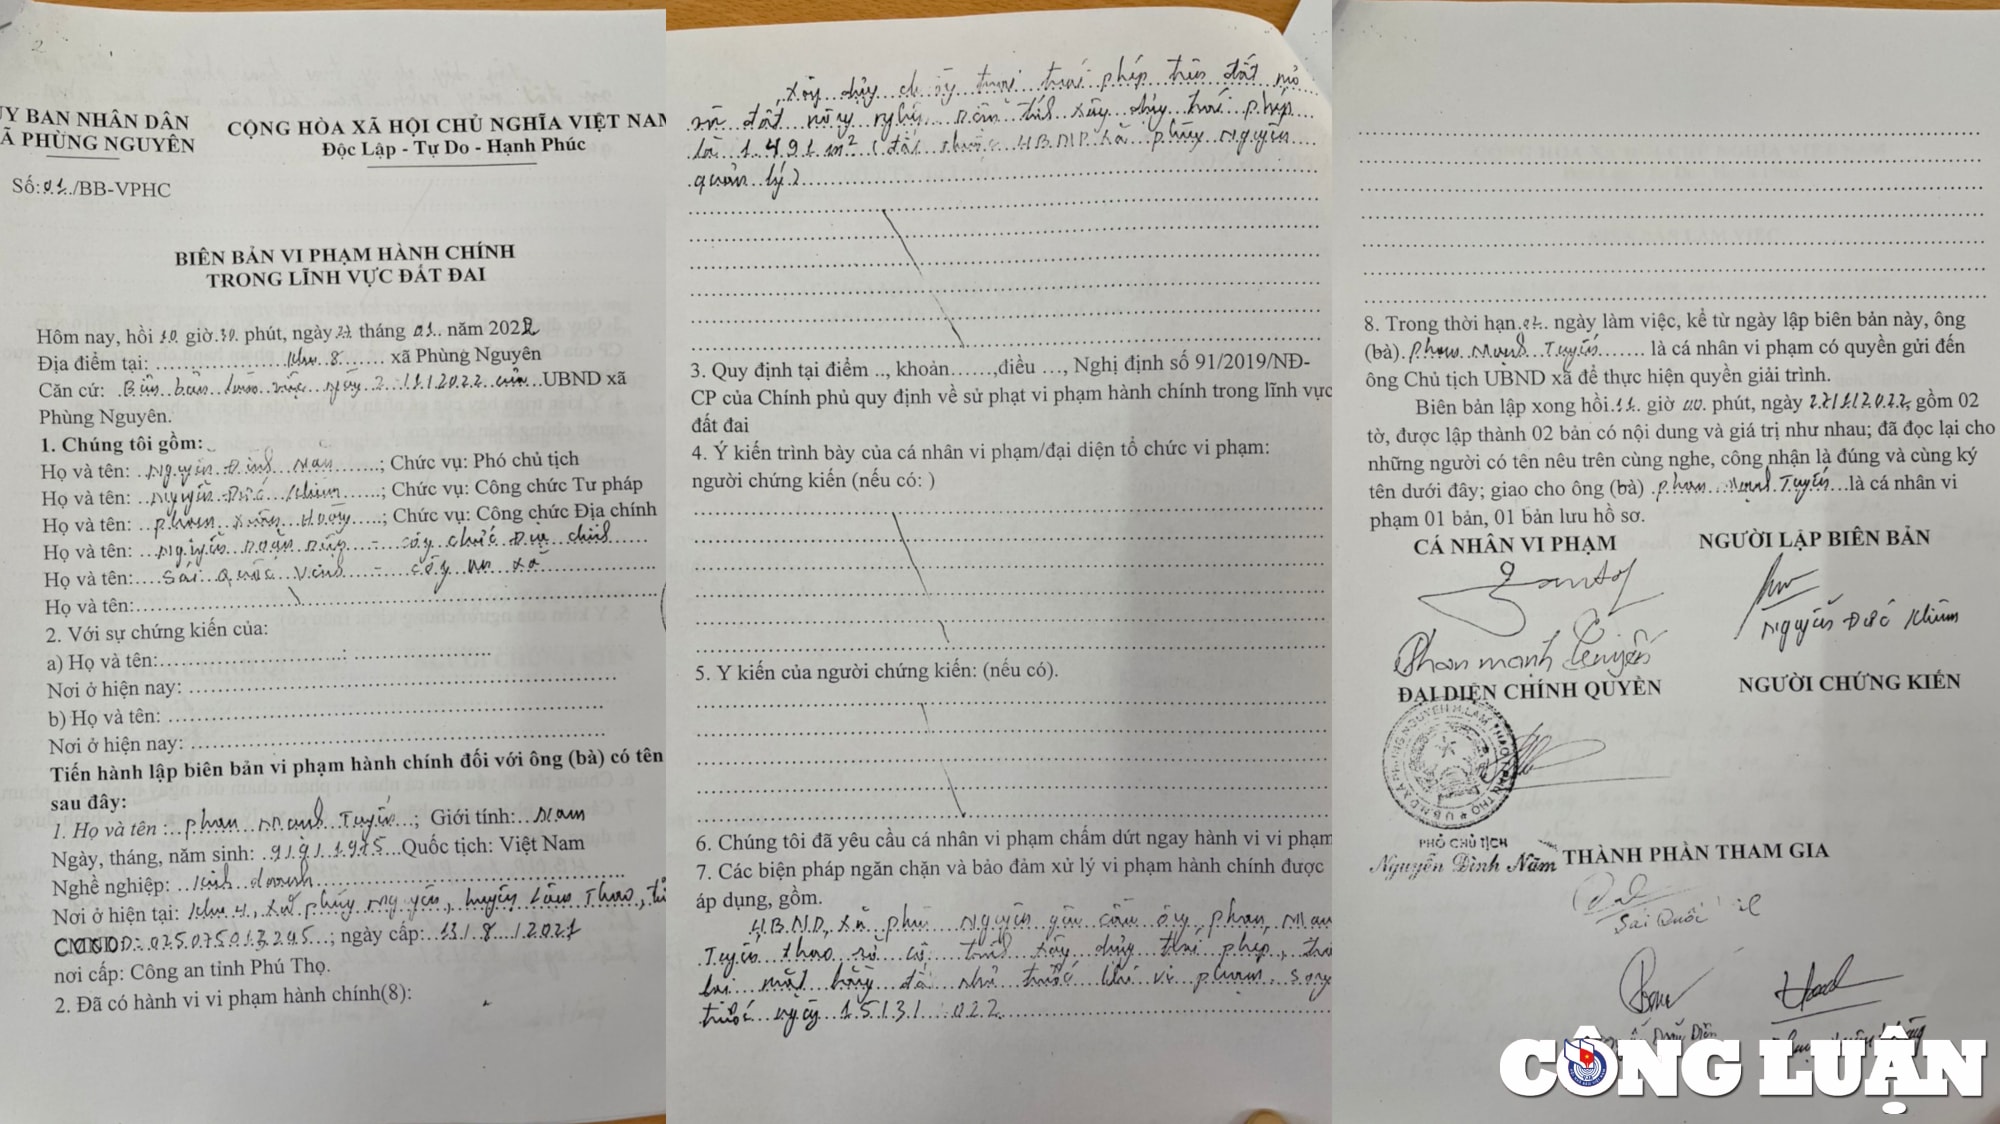 ỦY BAN NHÂN DÂN
XÃ PHÙNG NGUYÊN
CỘNG HÒA XÃ HỘI CHỦ NGHĨA VIỆT NAM
Độc Lập - Tự Do - Hạnh Phúc
Số:01./BB-VPHC
BIÊN BẢN VI PHẠM HÀNH CHÍNH
TRONG LĨNH VỰC ĐẤT ĐAI
Hôm nay, hồi 10 giờ 30 phút, ngày 27 tháng 01 năm 2022
Địa điểm tại: Khu 8 xã Phùng Nguyên
Căn cứ: Biên bản làm việc ngày 2 /1/2022 của UBND xã
Phùng Nguyên.
1. Chúng tôi gồm:
Họ và tên: Nguyễn Đình Năm; Chức vụ: Phó chủ tịch
Họ và tên: Nguyễn Đức Khiêm; Chức vụ: Công chức Tư pháp
Họ và tên: Phan Xuân; Chức vụ: Công chức Địa chính
Họ và tên: Nguyễn - Công chức Địa chính
Họ và tên: Sái Quốc Vinh - Công an xã
Họ và tên:
2. Với sự chứng kiến của:
a) Họ và tên:
Nơi ở hiện nay:
b) Họ và tên:
Nơi ở hiện nay:
Tiến hành lập biên bản vi phạm hành chính đối với ông (bà) có tên
sau đây:
1. Họ và tên : Phan Mạnh Tuyến; Giới tính: Nam
Ngày, tháng, năm sinh: 9/9/1975 Quốc tịch: Việt Nam
Nghề nghiệp: Kinh doanh
Nơi ở hiện tại: Khu 4, xã Phùng Nguyên, huyện Lâm Thao, tỉ
CMND: 025075013245; ngày cấp: 13/8/2021
nơi cấp: Công an tỉnh Phú Thọ.
2. Đã có hành vi vi phạm hành chính(8):
Xây dựng trang trại trái phép trên đất
và đất nông nghiệp, diện tích xây dựng trái phép
là 1.491 m2 (đất thuộc UBND xã Phùng Nguyên
quản lý)
3. Quy định tại điểm .., khoản……,điều …, Nghị định số 91/2019/NĐ-
CP của Chính phủ quy định về sử phạt vi phạm hành chính trong lĩnh vực
đất đai
4. Ý kiến trình bày của cá nhân vi phạm/đại diện tổ chức vi phạm:
người chứng kiến (nếu có: )
5. Y kiến của người chứng kiến: (nếu có).
6. Chúng tôi đã yêu cầu cá nhân vi phạm chấm dứt ngay hành vi vi phạm
7. Các biện pháp ngăn chặn và bảo đảm xử lý vi phạm hành chính được
áp dụng, gồm.
UBND xã Phùng Nguyên yêu cầu ông Phan Mạn
Tuyến tháo rỡ công trình xây dựng trái phép, trả
lại mặt bằng đất như trước khi vi phạm. Song
trước ngày 15/3/ 022
8. Trong thời hạn 02 ngày làm việc, kể từ ngày lập biên bản này, ông
(bà) Phan Mạnh Tuyến là cá nhân vi phạm có quyền gửi đến
ông Chủ tịch UBND xã để thực hiện quyền giải trình.
Biên bản lập xong hồi 11 giờ 00 phút, ngày 27/1/2022, gồm 02
tờ, được lập thành 02 bản có nội dung và giá trị như nhau; đã đọc lại cho
những người có tên nêu trên cùng nghe, công nhận là đúng và cùng ký
tên dưới đây; giao cho ông (bà) Phan Mạnh Tuyến là cá nhân vi
phạm 01 bản, 01 bản lưu hồ sơ.
CÁ NHÂN VI PHẠM
NGƯỜI LẬP BIÊN BẢN
Phan Mạnh Tuyến
Nguyễn Đức Khiêm
ĐẠI DIỆN CHÍNH QUYỀN
NGƯỜI CHỨNG KIẾN
U.B.N.D XÃ PHÙNG NGUYÊN H.LÂM THAO T.PHÚ THỌ
PHÓ CHỦ TỊCH
Nguyễn Đình Năm
THÀNH PHẦN THAM GIA
Sái Quốc
CÔNG LUẬN